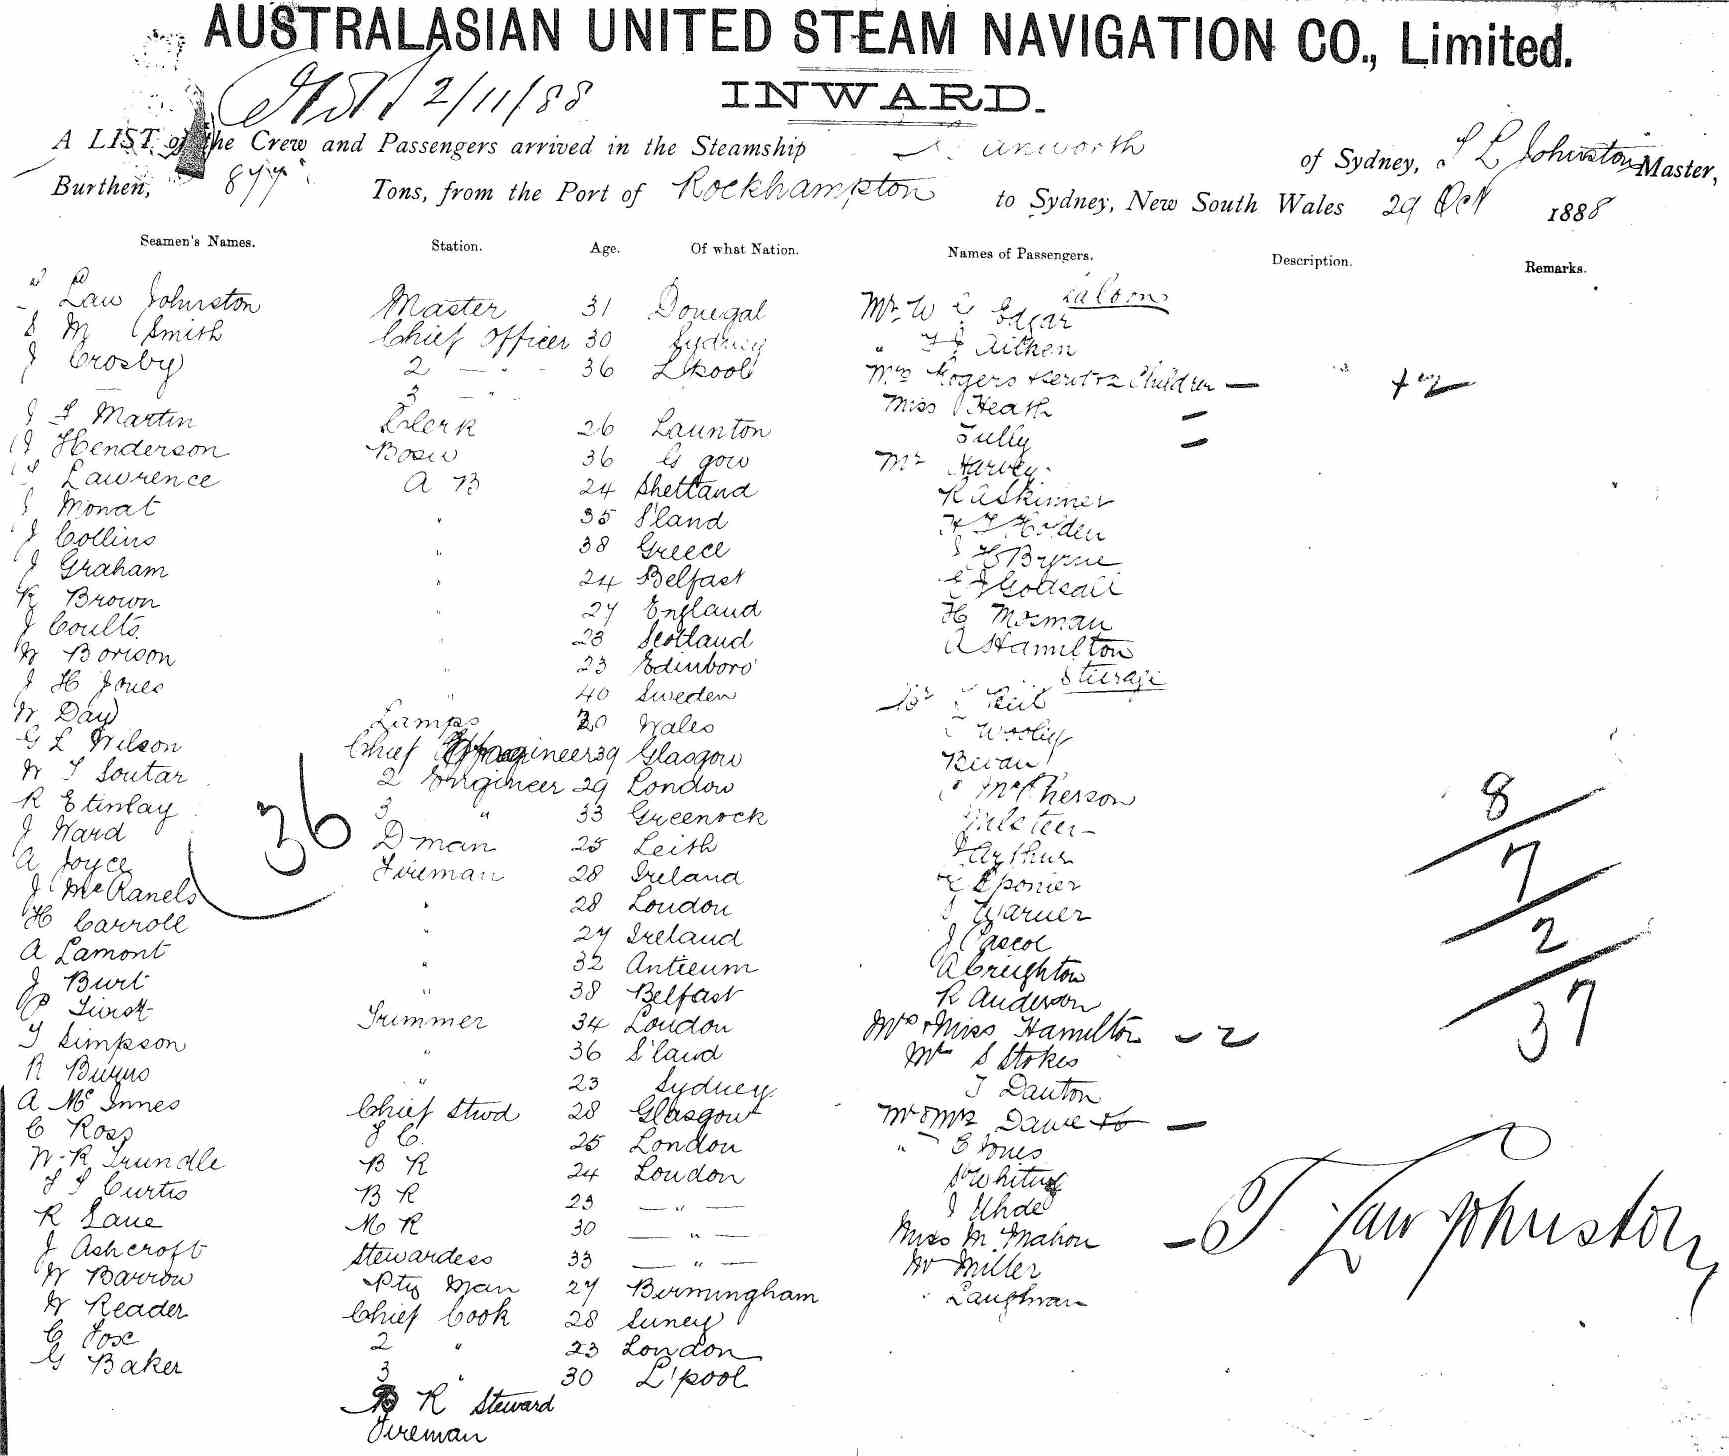 AUSTRALASIAN UNITED STEAM NAVIGATION CO., Limited.
2/11/88
INWARD.
A LIST of the Crew and Passengers arrived in the Steamship anworth of Sydney, Johnston Master,
Burthen, 877 Tons, from the Port of Rockhampton to Sydney, New South Wales 29 Oct 1888
Seamen's Names. Station. Age. Of what Nation. Names of Passengers. Description. Remarks.
Saloon
Law Johnston Master 31 Donegal Mr. W Edgar
M Smith Chief Officer 30 Sydney " Aitken
J Crosby 2 — " - 36 L'pool Mrs Rogers Children — + 2
3 — " - Miss Heath —
Martin Clerk 26 Launton Tully —
Henderson Bosw 36 G gow Mr Harvey
Lawrence A B 24 Shetland R A Skinner
Monat " 35 S'land Holden
J Collins " 38 Greece Byrne
J Graham " 24 Belfast Godsall
R Brown " 27 England H Mosman
J Coults " 23 Scotland A Hamilton
W Borison " 23 Edinboro' Steerage
J H Jones " 40 Sweden
W Day Lamps 20 Wales Wooley
G L Wilson Chief Engineer 39 Glasgow Bevan
W Soutar 2 Engineer 29 London McPherson
R 3 " 33 Greenock
J Ward D man 25 Leith Arthur
A Joyce Fireman 28 Ireland Sponier
J McRanels " 28 London Warner
H Carroll " 27 Ireland J Pascoe
A Lamont " 32 Antieum A Creighton
J Burt " 38 Belfast R Anderson
P Trimmer 34 London Mrs & Miss Hamilton — 2
Simpson " 36 S'land Mr S Stokes
R Burns " 23 Sydney T Danton
A McInnes Chief Stwd 28 Glasgow Mr & Mrs Dawe —
C Ross 25 London " Jones
W. R. Trundle B R 24 London Whiting
Curtis B R 23 — " — J Uhde
R Lane M R 30 — " — Miss M. Mahon
J Ashcroft Stewardess 33 — " — Mr Miller
W Barrow Pty Man 27 Birmingham Laughman
W Reader Chief Cook 28 Surrey
C Fox 2 " 23 London
G Baker 3 " 30 L'pool
B R Steward
Fireman
36
8
7
2
37
T. Law Johnston